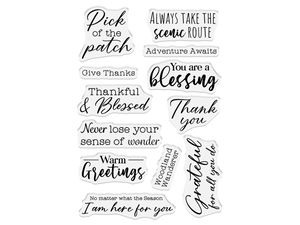 Pick
of the
patch
ALWAYS TAKE THE
scenic ROUTE
Adventure Awaits
Give Thanks
You are a
blessing
Thankful
& Blessed
Thank
you
Never lose your
sense of wonder
Warm
Greetings
Woodland
Wanderer
Grateful
for all you do
No matter what the Season
I am here for you